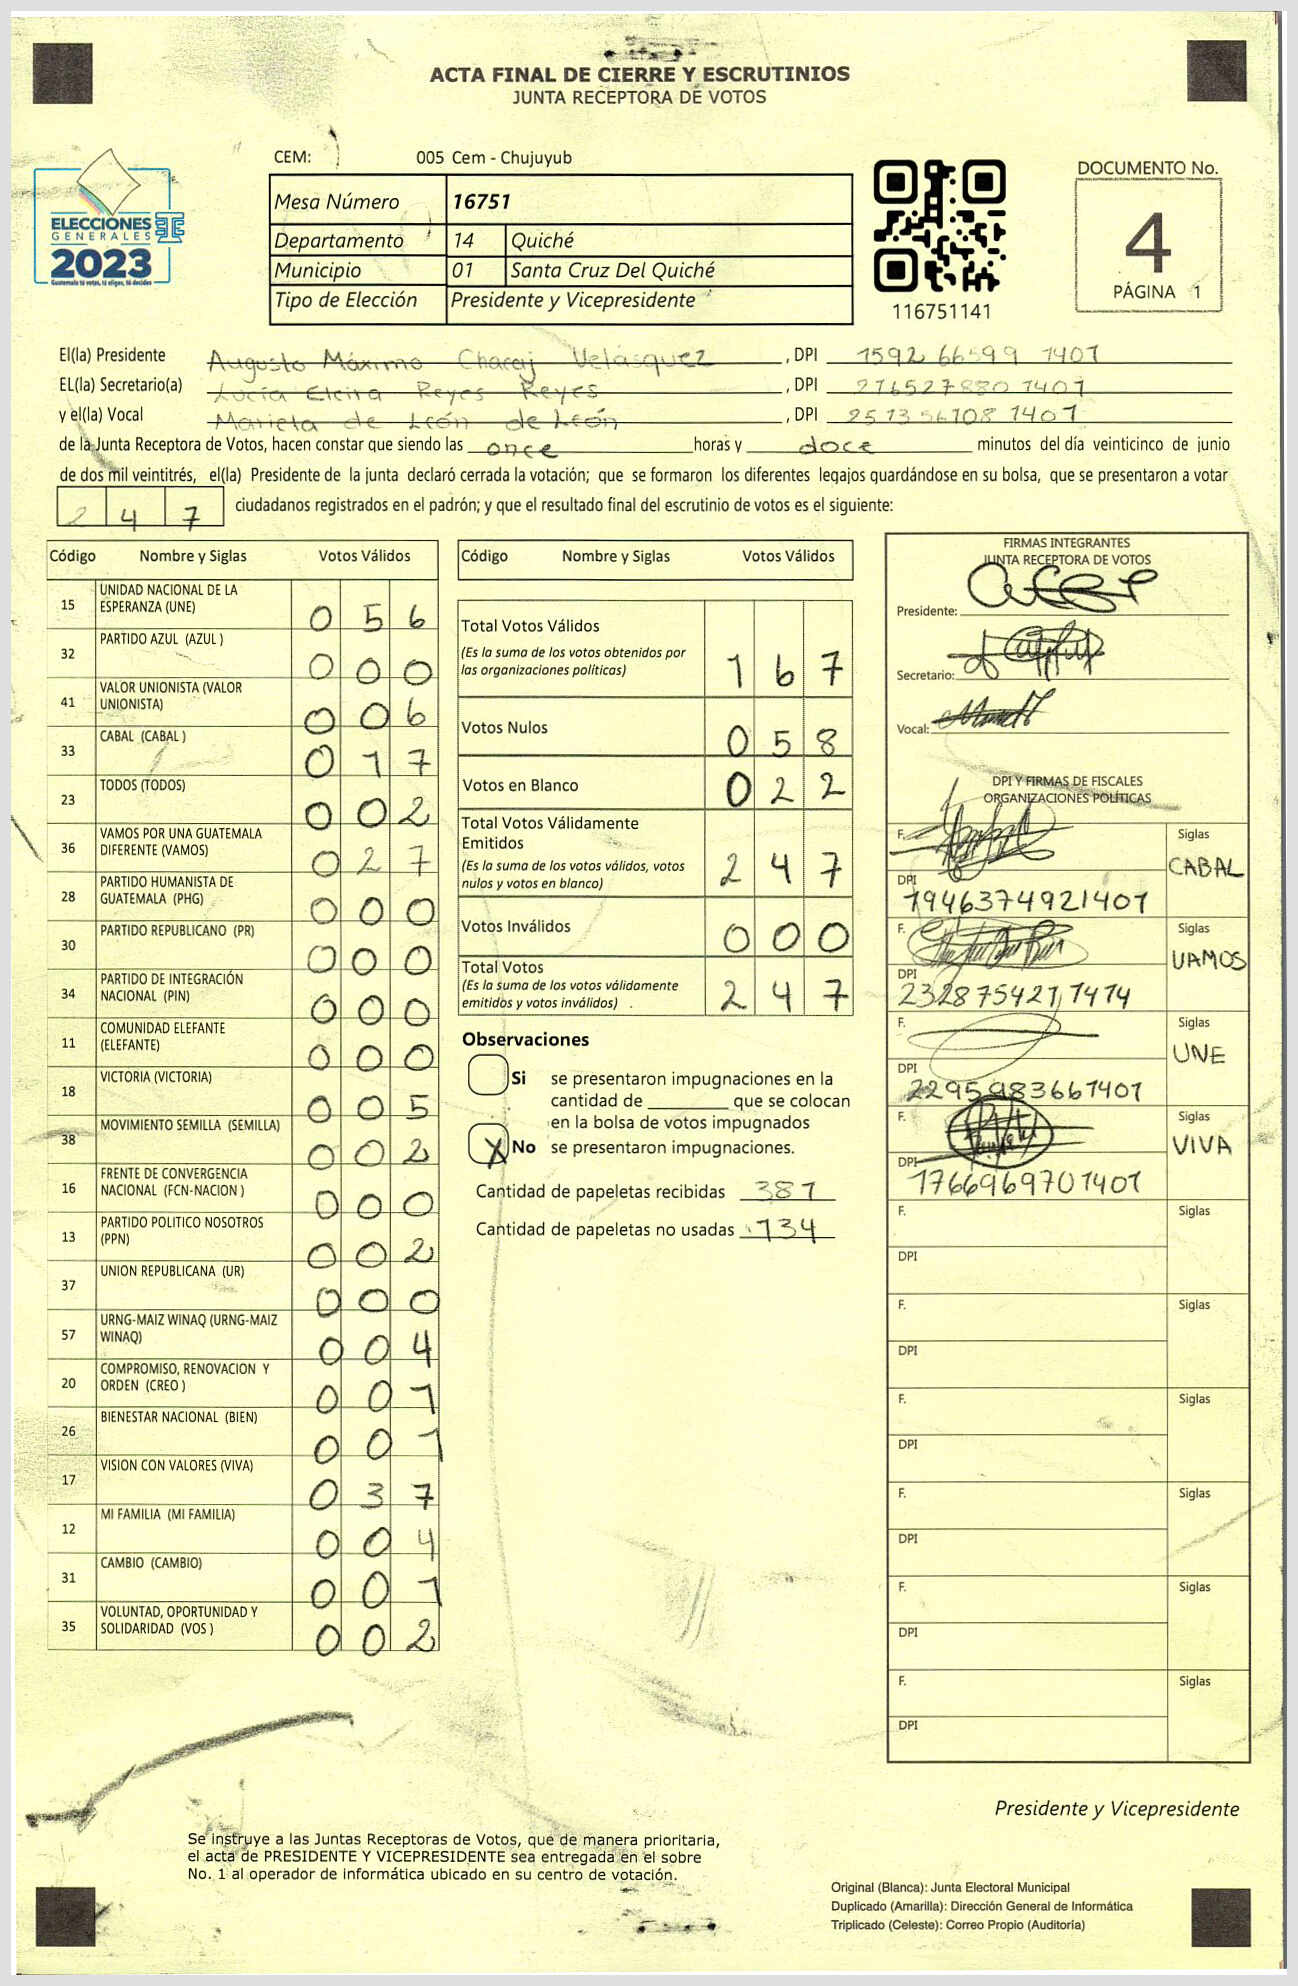 ACTA FINAL DE CIERRE Y ESCRUTINIOS
JUNTA RECEPTORA DE VOTOS
CEM: 005 Cem - Chujuyub
DOCUMENTO No.
4
PÁGINA 1
ELECCIONES
GENERALES
2023
Guatemala tú votas, tú eliges, tú decides
Mesa Número 16751
Departamento 14 Quiché
Municipio 01 Santa Cruz Del Quiché
Tipo de Elección Presidente y Vicepresidente
116751141
El(la) Presidente Augusto Máximo Chacaj Velásquez, DPI 1592 66599 1401
EL(la) Secretario(a) Lucía Elvira Reyes Reyes, DPI 216527880 1401
y el(la) Vocal Marieta de León de León, DPI 2513 56108 1401
de la Junta Receptora de Votos, hacen constar que siendo las once horas y doce minutos del día veinticinco de junio
de dos mil veintitrés, el(la) Presidente de la junta declaró cerrada la votación; que se formaron los diferentes legajos guardándose en su bolsa, que se presentaron a votar
247 ciudadanos registrados en el padrón; y que el resultado final del escrutinio de votos es el siguiente:
Código Nombre y Siglas Votos Válidos
15 UNIDAD NACIONAL DE LA ESPERANZA (UNE) 0 5 6
32 PARTIDO AZUL (AZUL ) 0 0 0
41 VALOR UNIONISTA (VALOR UNIONISTA) 0 0 6
33 CABAL (CABAL ) 0 1 7
23 TODOS (TODOS) 0 0 2
36 VAMOS POR UNA GUATEMALA DIFERENTE (VAMOS) 0 2 7
28 PARTIDO HUMANISTA DE GUATEMALA (PHG) 0 0 0
30 PARTIDO REPUBLICANO (PR) 0 0 0
34 PARTIDO DE INTEGRACIÓN NACIONAL (PIN) 0 0 0
11 COMUNIDAD ELEFANTE (ELEFANTE) 0 0 0
18 VICTORIA (VICTORIA) 0 0 5
38 MOVIMIENTO SEMILLA (SEMILLA) 0 0 2
16 FRENTE DE CONVERGENCIA NACIONAL (FCN-NACION ) 0 0 0
13 PARTIDO POLITICO NOSOTROS (PPN) 0 0 2
37 UNION REPUBLICANA (UR) 0 0 0
57 URNG-MAIZ WINAQ (URNG-MAIZ WINAQ) 0 0 4
20 COMPROMISO, RENOVACION Y ORDEN (CREO ) 0 0 1
26 BIENESTAR NACIONAL (BIEN) 0 0 1
17 VISION CON VALORES (VIVA) 0 3 7
12 MI FAMILIA (MI FAMILIA) 0 0 4
31 CAMBIO (CAMBIO) 0 0 1
35 VOLUNTAD, OPORTUNIDAD Y SOLIDARIDAD (VOS ) 0 0 2
Código Nombre y Siglas Votos Válidos
Total Votos Válidos
(Es la suma de los votos obtenidos por
las organizaciones políticas) 1 6 7
Votos Nulos 0 5 8
Votos en Blanco 0 2 2
Total Votos Válidamente
Emitidos
(Es la suma de los votos válidos, votos
nulos y votos en blanco) 2 4 7
Votos Inválidos 0 0 0
Total Votos
(Es la suma de los votos válidamente
emitidos y votos inválidos) 2 4 7
Observaciones
Si se presentaron impugnaciones en la
cantidad de ________ que se colocan
en la bolsa de votos impugnados
X No se presentaron impugnaciones.
Cantidad de papeletas recibidas 381
Cantidad de papeletas no usadas 134
FIRMAS INTEGRANTES
JUNTA RECEPTORA DE VOTOS
Presidente:
Secretario:
Vocal:
DPI Y FIRMAS DE FISCALES
ORGANIZACIONES POLÍTICAS
F. Siglas CABAL
DPI 1946374921401
F. Siglas VAMOS
DPI 2328754271474
F. Siglas UNE
DPI 2295983661401
F. Siglas VIVA
DPI 1766969701401
F. Siglas
DPI
F. Siglas
DPI
F. Siglas
DPI
F. Siglas
DPI
F. Siglas
DPI
F. Siglas
DPI
Presidente y Vicepresidente
Se instruye a las Juntas Receptoras de Votos, que de manera prioritaria,
el acta de PRESIDENTE Y VICEPRESIDENTE sea entregada en el sobre
No. 1 al operador de informática ubicado en su centro de votación.
Original (Blanca): Junta Electoral Municipal
Duplicado (Amarilla): Dirección General de Informática
Triplicado (Celeste): Correo Propio (Auditoría)